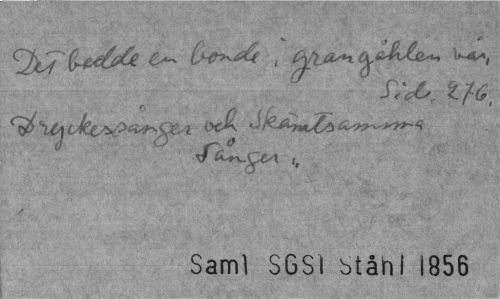 Det bodde en bonde i grangåhlen vår,
Sid. 276.
Dryckessånger och Skämtsamma
Sånger„
Saml SGSI Ståhl 1856